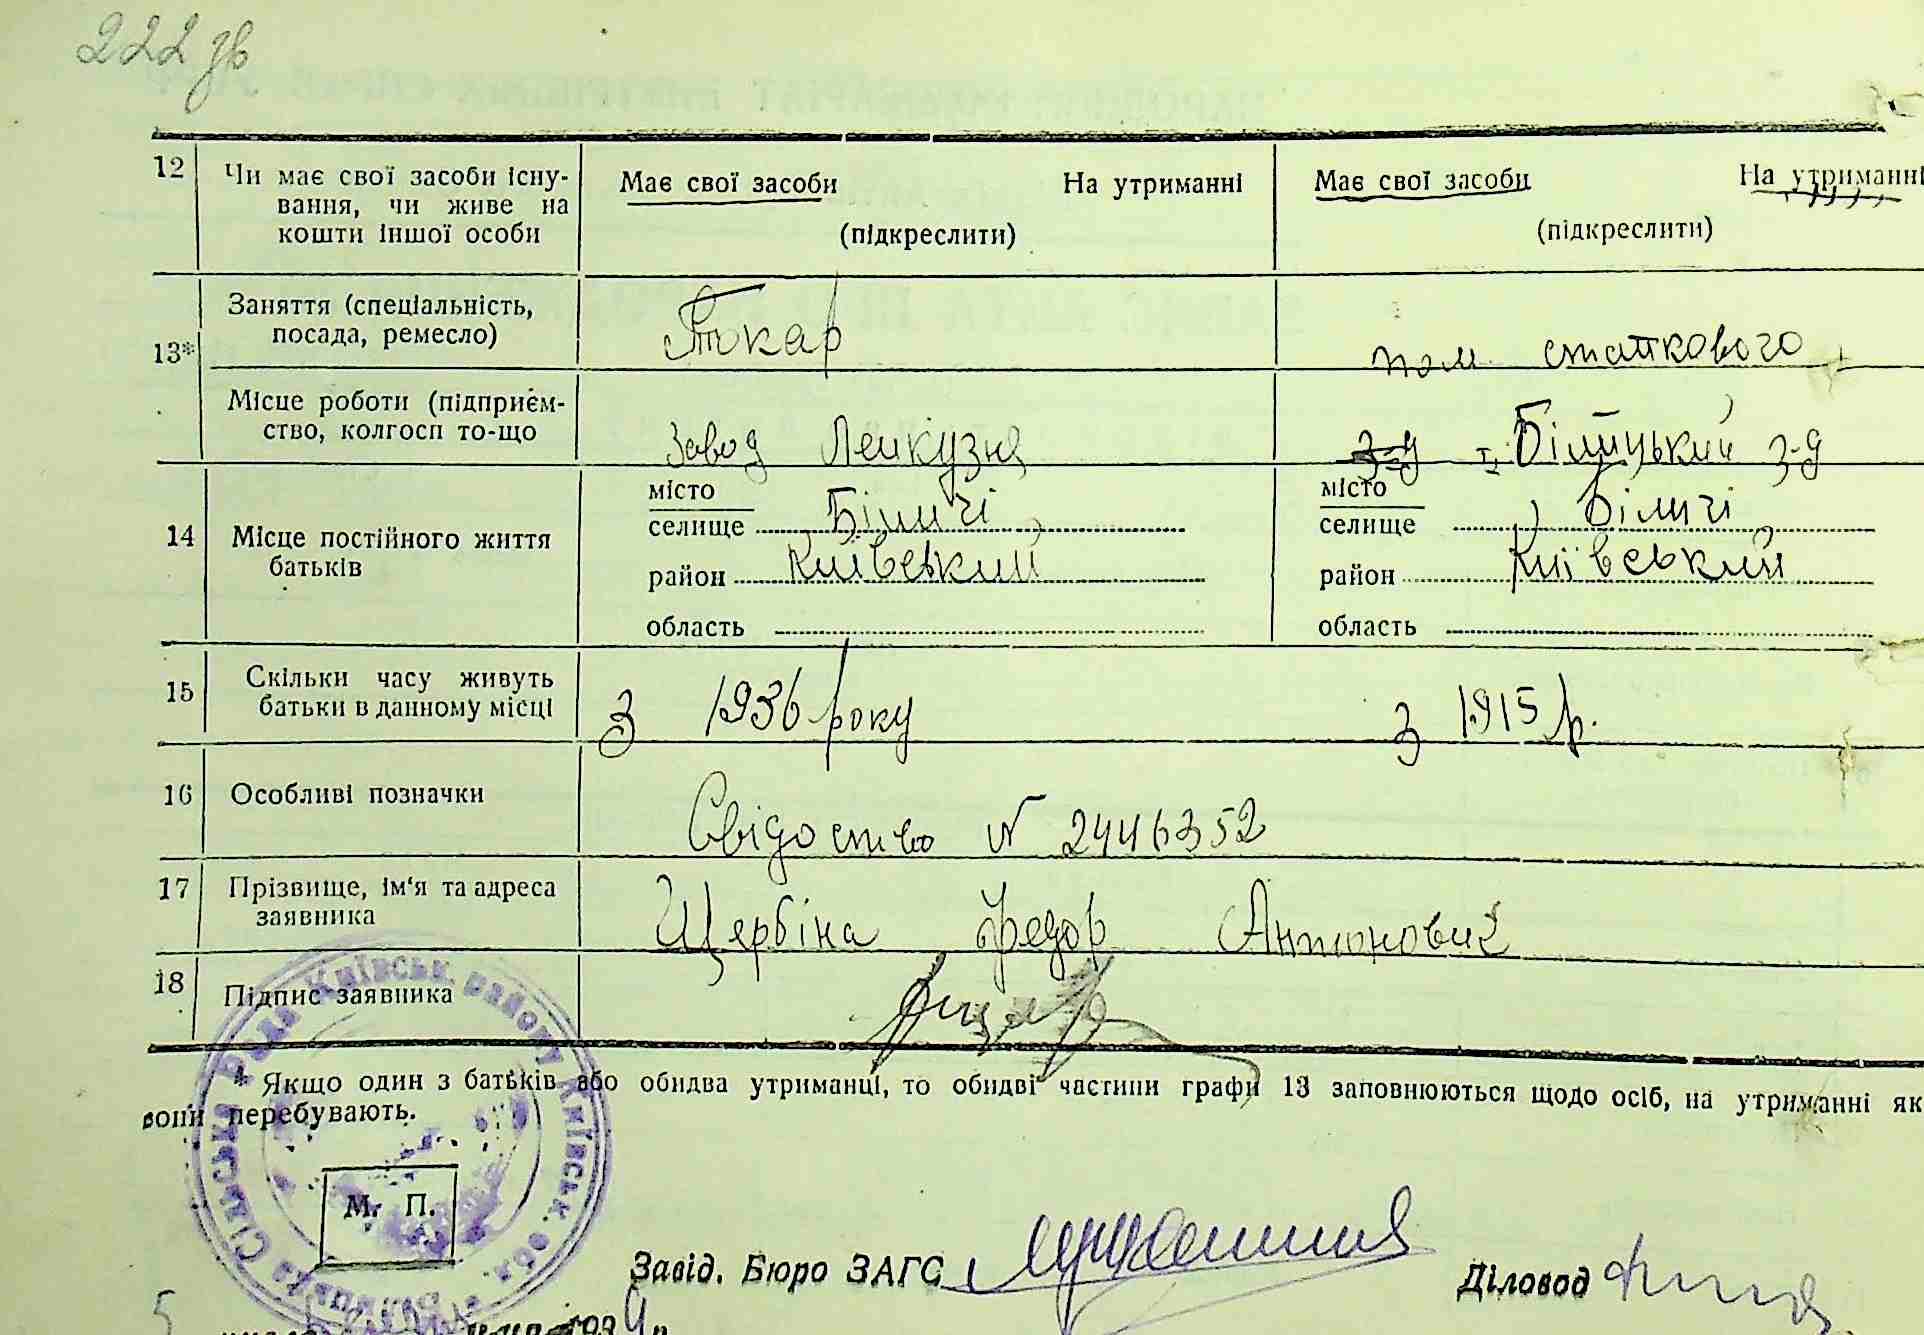 222 зв
12 Чи має свої засоби існу- Має свої засоби На утриманні Має свої засоби На утриманні
вання, чи живе на
кошти іншої особи (підкреслити) (підкреслити)
13* Заняття (спеціальність,
посада, ремесло) Токар пом. статкового
Місце роботи (підприєм-
ство, колгосп то-що Завод Ленкузня Біліцький з-д
14 Місце постійного життя
батьків
місто місто
селище Біличі селище Біличі
район Київський район Київський
область область
15 Скільки часу живуть
батьки в данному місці З 1936 року З 1915 р.
16 Особливі позначки Свідоство № 2446352
17 Прізвище, ім'я та адреса
заявника Щербіна Федор Антонович
18 Підпис заявника
* Якщо один з батьків або обидва утриманці, то обидві частини графи 13 заповнюються щодо осіб, на утриманні як
вони перебувають.
Сільська Рада Київськ. району Київськ. обл.
М. П.
Завід. Бюро ЗАГС Діловод
5